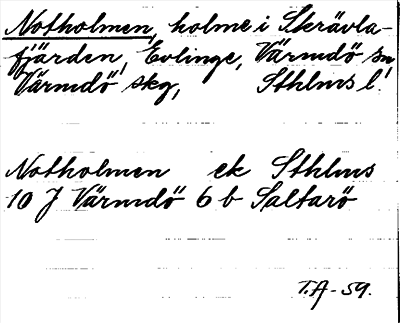 Notholmen, holme i Skrävla-
fjärden, Evlinge, Värmdö sn
Värmdö skg, Sthlms l.
Notholmen ek Sthlms
10 J Värmdö 6 b Saltarö
T.A-59.